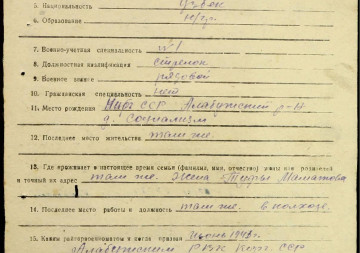 5. Национальность узбек
6. Образование н/гр.
7. Военно-учетная специальность №1
8. Должностная квалификация стрелок
9. Военное звание рядовой
10. Гражданская специальность нет
11. Место рождения ССР р-н
д. Социализм
12. Последнее место жительства там же.
13. Где проживает в настоящее время семья (фамилия, имя, отчество) жены или родителей
и точный их адрес там же. Жена
14. Последнее место работы и должность там же. в колхозе.
15. Каким райгорвоенкоматом и когда призван июнь
РВК Кирг. ССР